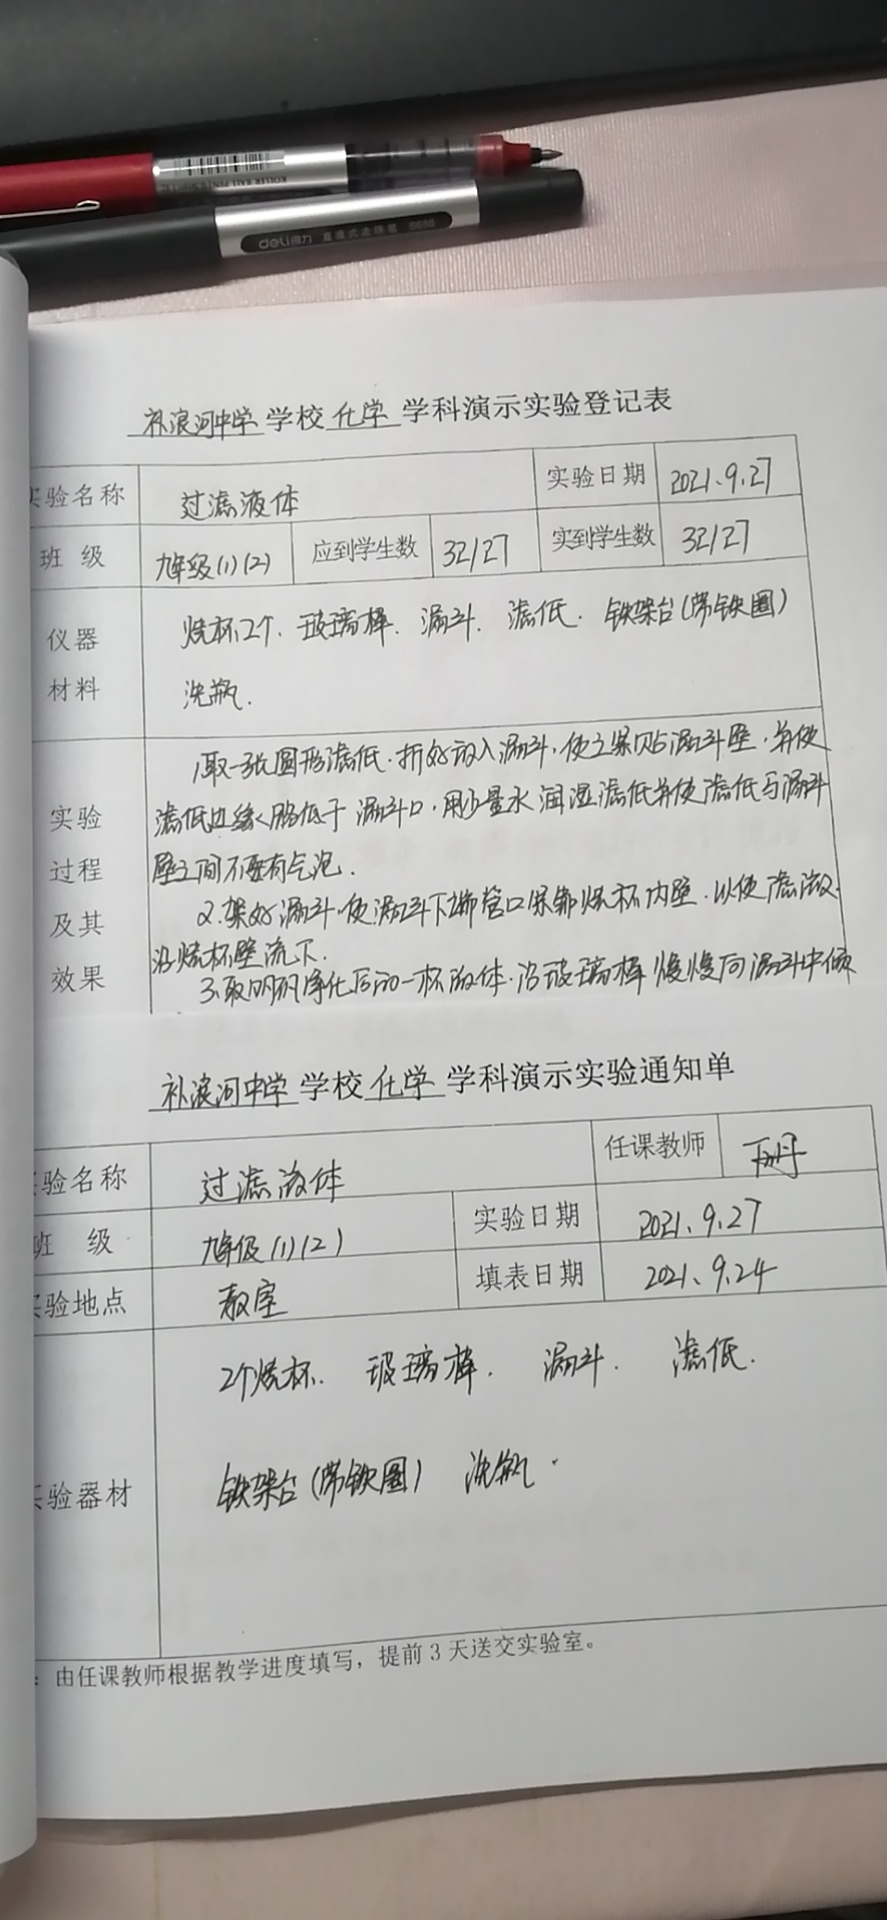 ROLLER BALL PEN
deli得力 直液式走珠笔 S656
补浪河中学 学校 化学 学科演示实验登记表
实验名称 过滤液体 实验日期 2021、9.27
班 级 九年级(1)(2) 应到学生数 32/27 实到学生数 32/27
仪器 烧杯2个. 玻璃棒. 漏斗. 滤低. 铁架台(带铁圈)
材料 洗瓶.
1取一张圆形滤低.折好放入漏斗,使之紧贴漏斗壁.并使
实验 滤低边缘略低于漏斗口,用少量水润湿滤低并使滤低与漏斗
过程 壁之间不要有气泡.
及其 2.架好漏斗.使漏斗下端管口紧靠烧杯内壁.以使滤液
沿烧杯壁流下.
效果 3.取明矾净化后的一杯液体.沿玻璃棒慢慢向漏斗中倾
补浪河中学 学校 化学 学科演示实验通知单
实验名称 过滤液体 任课教师
班 级 九年级(1)(2) 实验日期 2021、9.27
实验地点 教室 填表日期 2021、9.24
2个烧杯. 玻璃棒. 漏斗. 滤低.
实验器材 铁架台(带铁圈) 洗瓶.
:由任课教师根据教学进度填写,提前3天送交实验室。